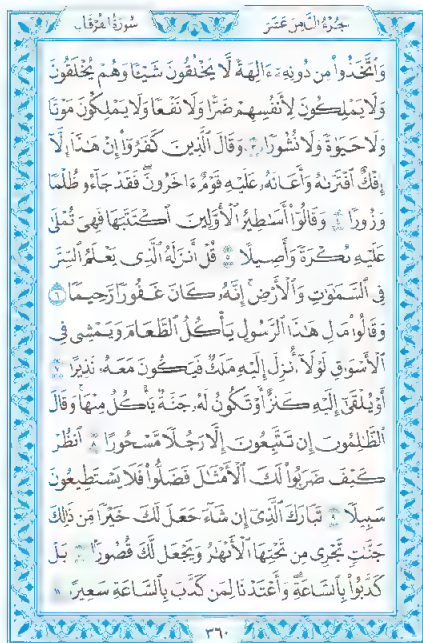 سُورَةُ الْفُرْقَانِ
الجُزْءُ الثَّامِنَ عَشَرَ
وَٱتَّخَذُوا۟ مِن دُونِهِۦٓ ءَالِهَةً لَّا يَخْلُقُونَ شَيْـًٔا وَهُمْ يُخْلَقُونَ
وَلَا يَمْلِكُونَ لِأَنفُسِهِمْ ضَرًّا وَلَا نَفْعًا وَلَا يَمْلِكُونَ مَوْتًا
وَلَا حَيَوٰةً وَلَا نُشُورًا ٣ وَقَالَ ٱلَّذِينَ كَفَرُوٓا۟ إِنْ هَـٰذَآ إِلَّآ
إِفْكٌ ٱفْتَرَىٰهُ وَأَعَانَهُۥ عَلَيْهِ قَوْمٌ ءَاخَرُونَ ۖ فَقَدْ جَآءُو ظُلْمًا
وَزُورًا ٤ وَقَالُوٓا۟ أَسَـٰطِيرُ ٱلْأَوَّلِينَ ٱكْتَتَبَهَا فَهِىَ تُمْلَىٰ
عَلَيْهِ بُكْرَةً وَأَصِيلًا ٥ قُلْ أَنزَلَهُ ٱلَّذِى يَعْلَمُ ٱلسِّرَّ
فِى ٱلسَّمَـٰوَٰتِ وَٱلْأَرْضِ ۚ إِنَّهُۥ كَانَ غَفُورًا رَّحِيمًا ٦
وَقَالُوا۟ مَالِ هَـٰذَا ٱلرَّسُولِ يَأْكُلُ ٱلطَّعَامَ وَيَمْشِى فِى
ٱلْأَسْوَاقِ ۙ لَوْلَآ أُنزِلَ إِلَيْهِ مَلَكٌ فَيَكُونَ مَعَهُۥ نَذِيرًا ٧
أَوْ يُلْقَىٰٓ إِلَيْهِ كَنزٌ أَوْ تَكُونُ لَهُۥ جَنَّةٌ يَأْكُلُ مِنْهَا ۚ وَقَالَ
ٱلظَّـٰلِمُونَ إِن تَتَّبِعُونَ إِلَّا رَجُلًا مَّسْحُورًا ٨ ٱنظُرْ
كَيْفَ ضَرَبُوا۟ لَكَ ٱلْأَمْثَـٰلَ فَضَلُّوا۟ فَلَا يَسْتَطِيعُونَ
سَبِيلًا ٩ تَبَارَكَ ٱلَّذِىٓ إِن شَآءَ جَعَلَ لَكَ خَيْرًا مِّن ذَٰلِكَ
جَنَّـٰتٍ تَجْرِى مِن تَحْتِهَا ٱلْأَنْهَـٰرُ وَيَجْعَل لَّكَ قُصُورًۢا ١٠ بَلْ
كَذَّبُوا۟ بِٱلسَّاعَةِ ۖ وَأَعْتَدْنَا لِمَن كَذَّبَ بِٱلسَّاعَةِ سَعِيرًا ١١
٣٦٠